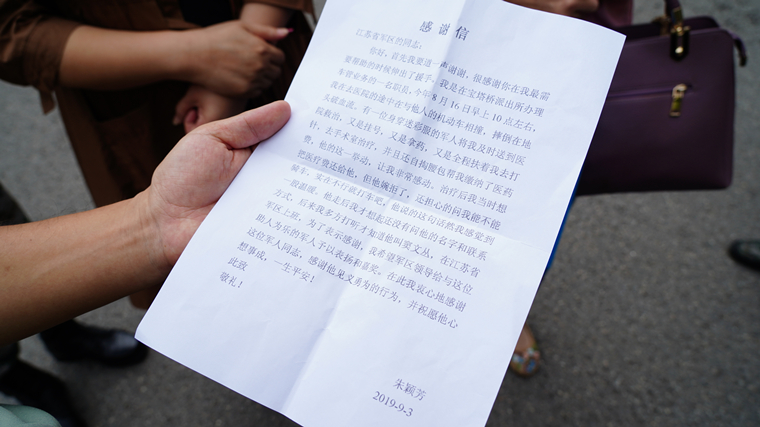 感谢信
江苏省军区的同志：
你好，首先我要道一声谢谢，很感谢你在我最需
要帮助的时候伸出了援手。我是在宝塔桥派出所办理
车管业务的一名职员，今年8月16日早上10点左右，
我在去医院的途中在与他人的机动车相撞，摔倒在地
头破血流。有一位身穿迷彩服的军人将我及时送到医
院救治，又是挂号，又是拿药，又是全程扶着我去打
针，去手术室治疗，并且还自掏腰包帮我缴纳了医药
费，他的这一举动，让我非常感动。治疗后我当时想
把医疗费还给他，但他婉拒了，还担心的问我能不能
骑车，实在不行就打车吧。他说的这句话然我感觉到
一股温暖。他走后我才想起还没有问他的名字和联系
方式，后来我多方打听才知道他叫窦文丛，在江苏省
军区上班，为了表示感谢，我希望军区领导给与这位
助人为乐的军人予以表扬和嘉奖。在此我衷心地感谢
这位军人同志，感谢他见义勇为的行为，并祝愿他心
想事成，一生平安！
此致
敬礼！
朱颖芳
2019-9-3